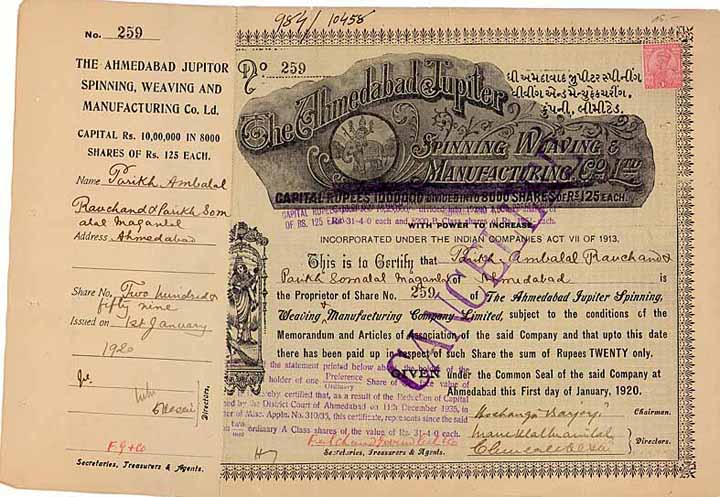 984/10458
No. 259
THE AHMEDABAD JUPITOR
SPINNING, WEAVING AND
MANUFACTURING Co. Ld.
CAPITAL Rs. 10,00,000 IN 8000
SHARES OF Rs. 125 EACH.
Name Parikh Ambalal
Ravchand & Parikh Som
alal Maganlal
Address Ahmedabad
Share No. Two hundred &
fifty nine
Issued on 1st January
1920
Directors.
F. G & Co
Secretaries, Treasurers & Agents.
No 259
The Ahmedabad Jupiter
SPINNING WEAVING &
MANUFACTURING CO. LTD
ધી અમદાવાદ જીુપીટર સ્પીનીંગ
વીવીંગ એન્ડ મેન્યુફેકચરીંગ
કુંપની, લીમીટેડ.
CAPITAL RUPEES 1000000 DIVIDED INTO 8000 SHARES OF RS 125 EACH.
OF RS. 125 EACH
31-4-0 each and
Class shares of Rs. each
WITH POWER TO INCREASE.
INCORPORATED UNDER THE INDIAN COMPANIES ACT VII OF 1913.
This is to Certify that Parikh Ambalal Ravchand &
Parikh Somalal Maganlal of Ahmedabad is
the Proprietor of Share No. 259 of The Ahmedabad Jupiter Spinning,
Weaving & Manufacturing Company Limited, subject to the conditions of the
Memorandum and Articles of Association of the said Company and that upto this date
there has been paid up in respect of such Share the sum of Rupees TWENTY only.
the statement printed below
GIVEN under the Common Seal of the said Company at
Ahmedabad this First day of January, 1920.
holder of one Preference Share of the value of
Ordinary
certified, that as a result of the Reduction of Capital
by the District Court of Ahmedabad on 11th December 1935, in
of Misc. Appln. No. 310/35, this certificate, represents since the said
ordinary A Class shares, of the value of Rs. 31-4-0 each.
CANCELLED
Chairman.
Directors.
Secretaries, Treasurers & Agents.